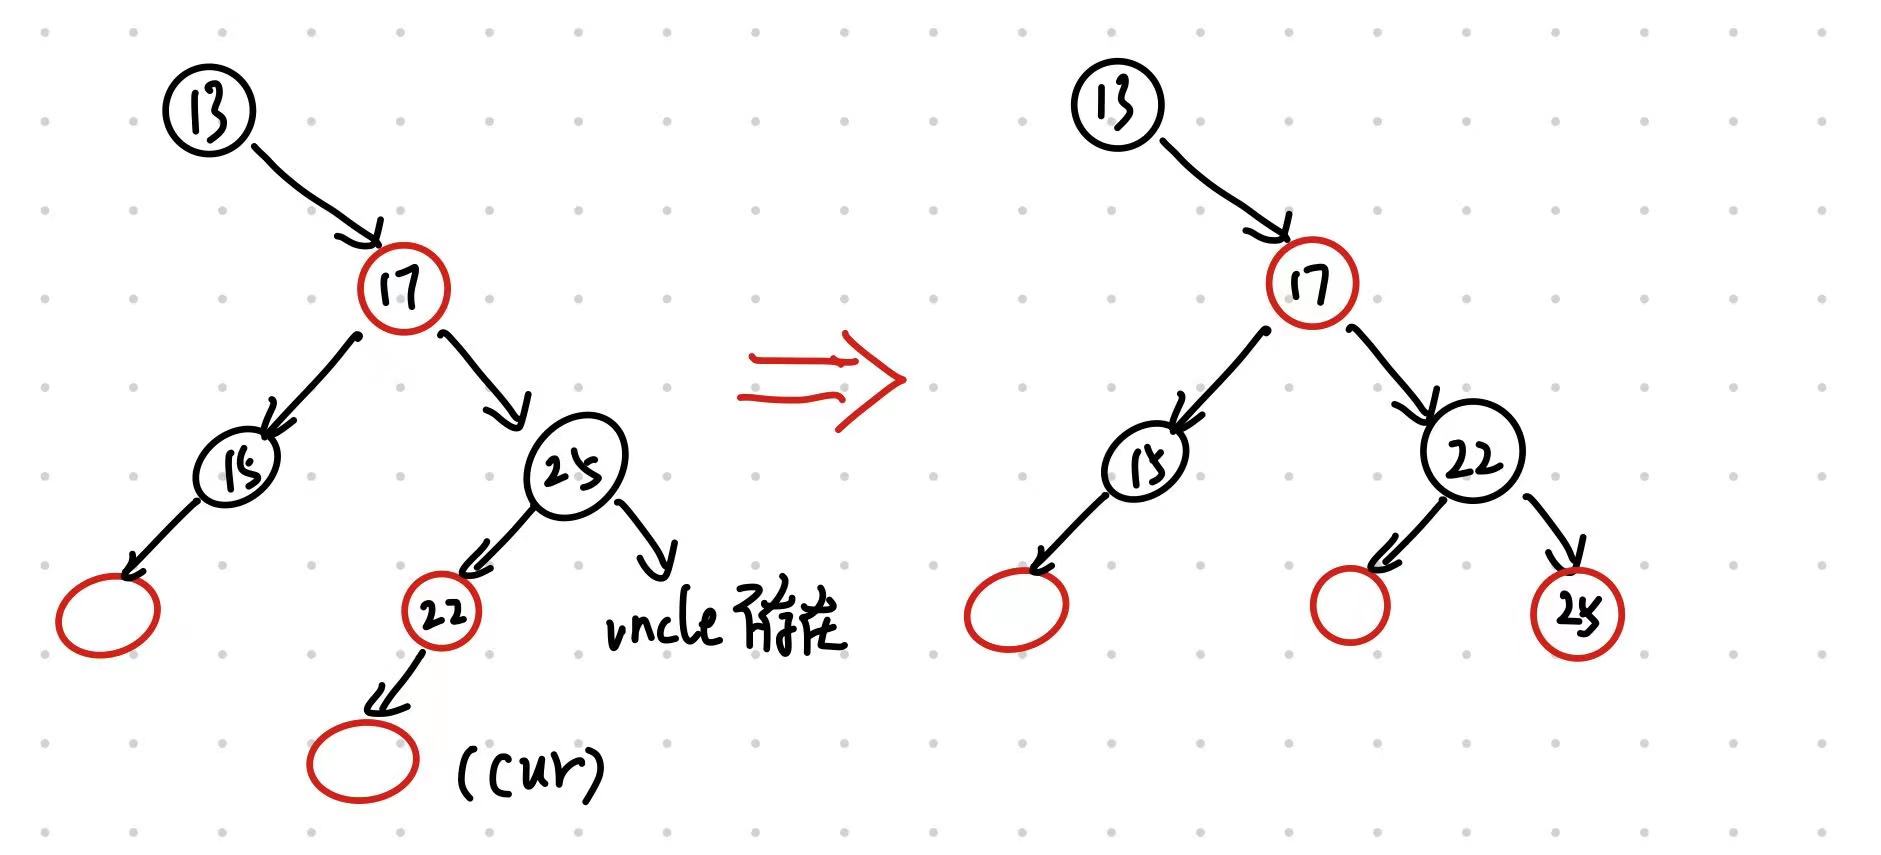 13
17
15
25
22
uncle 不存在
(cur)
13
17
15
22
25